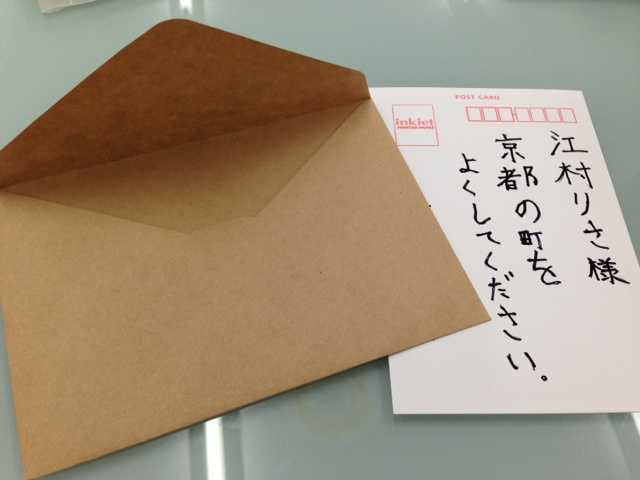 POST CARD
inkjet
PRINTED PAPER
江村りさ様
京都の町を
よくしてください。